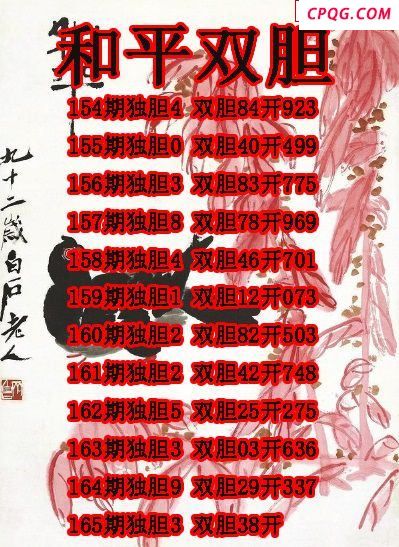 CPQG.COM
和平双胆
154期独胆4 双胆84开923
155期独胆0 双胆40开499
156期独胆3 双胆83开775
157期独胆8 双胆78开969
158期独胆4 双胆46开701
159期独胆1 双胆12开073
160期独胆2 双胆82开503
161期独胆2 双胆42开748
162期独胆5 双胆25开275
163期独胆3 双胆03开636
164期独胆9 双胆29开337
165期独胆3 双胆38开
九十二岁白石老人